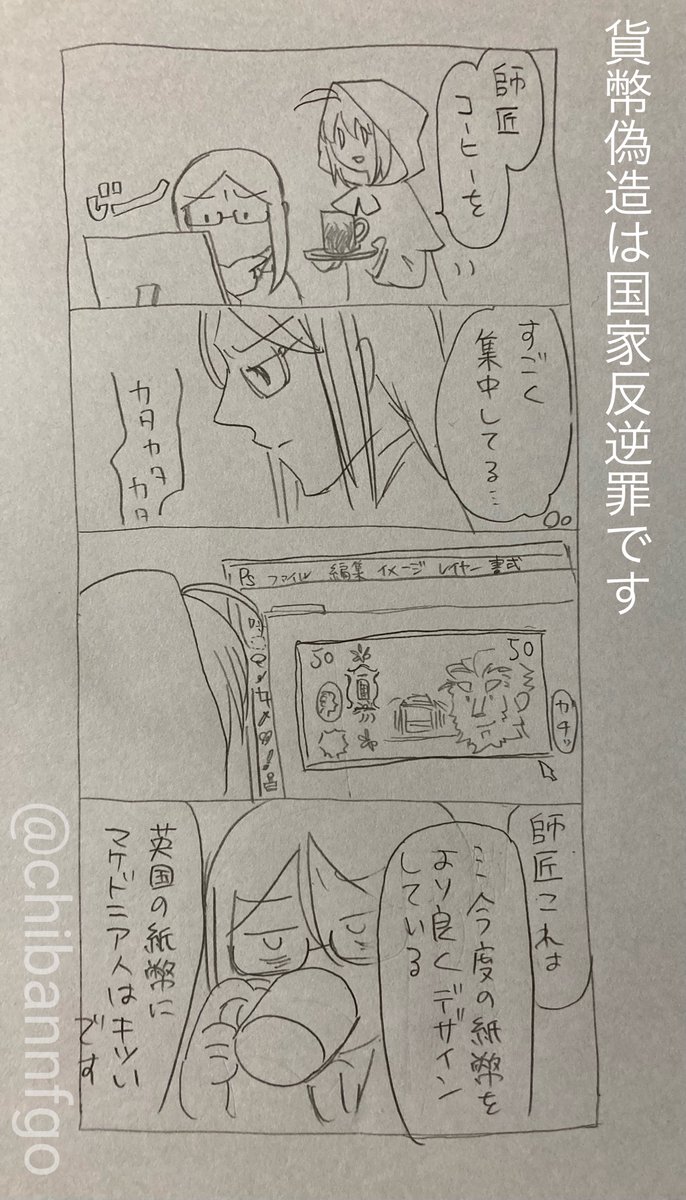 貨幣偽造は国家反逆罪です
師匠
コーヒーを
じーッ
すごく
集中してる…
カタカタ
カタ
カタ
Ps ファイル 編集 イメージ レイヤー 書式
50
50
カチッ
師匠これは
…今度の紙幣を
より良くデザイン
している
英国の紙幣に
マケドニア人はキツい
です
@chibannfgo